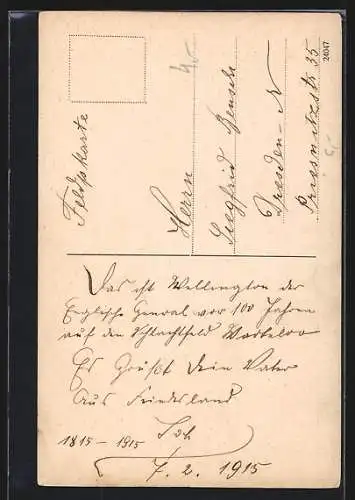 Feldpkarte
Herrn
Siegfried
Dresden-N
Priesnitzstr 35
24047
Das ist Wellington der
Englische General vor 100 Jahren
auf dem Schlachtfeld Waterloo
Es Grüßt Dein Vater
Aus Feindesland
1815 - 1915
7. 2. 1915